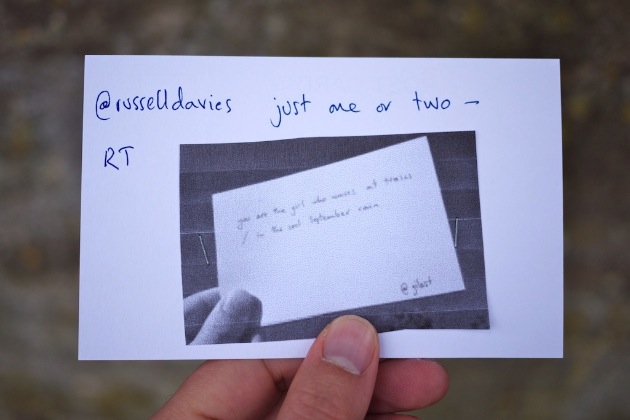 @russelldavies just one or two →
RT
you are the girl who waves at trains
/ in the cool September rain
@gilest